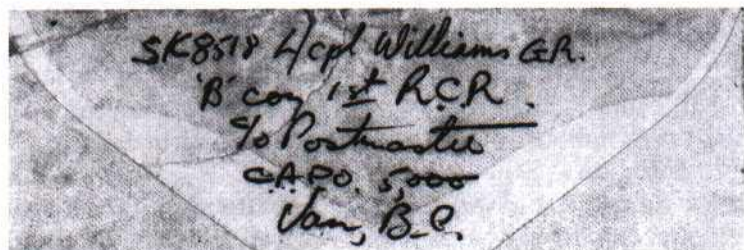 SK8518 L/cpl Williams G.R.
'B' coy 1st R.C.R.
c/o Postmaster
C.A.P.O. 5,000
Van, B.C.